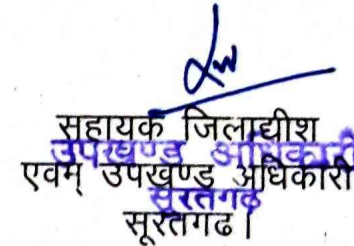 सहायक जिलाधीश
उपखण्ड अधिकारी
एवम् उपखण्ड अधिकारी
सूरतगढ
सूरतगढ।